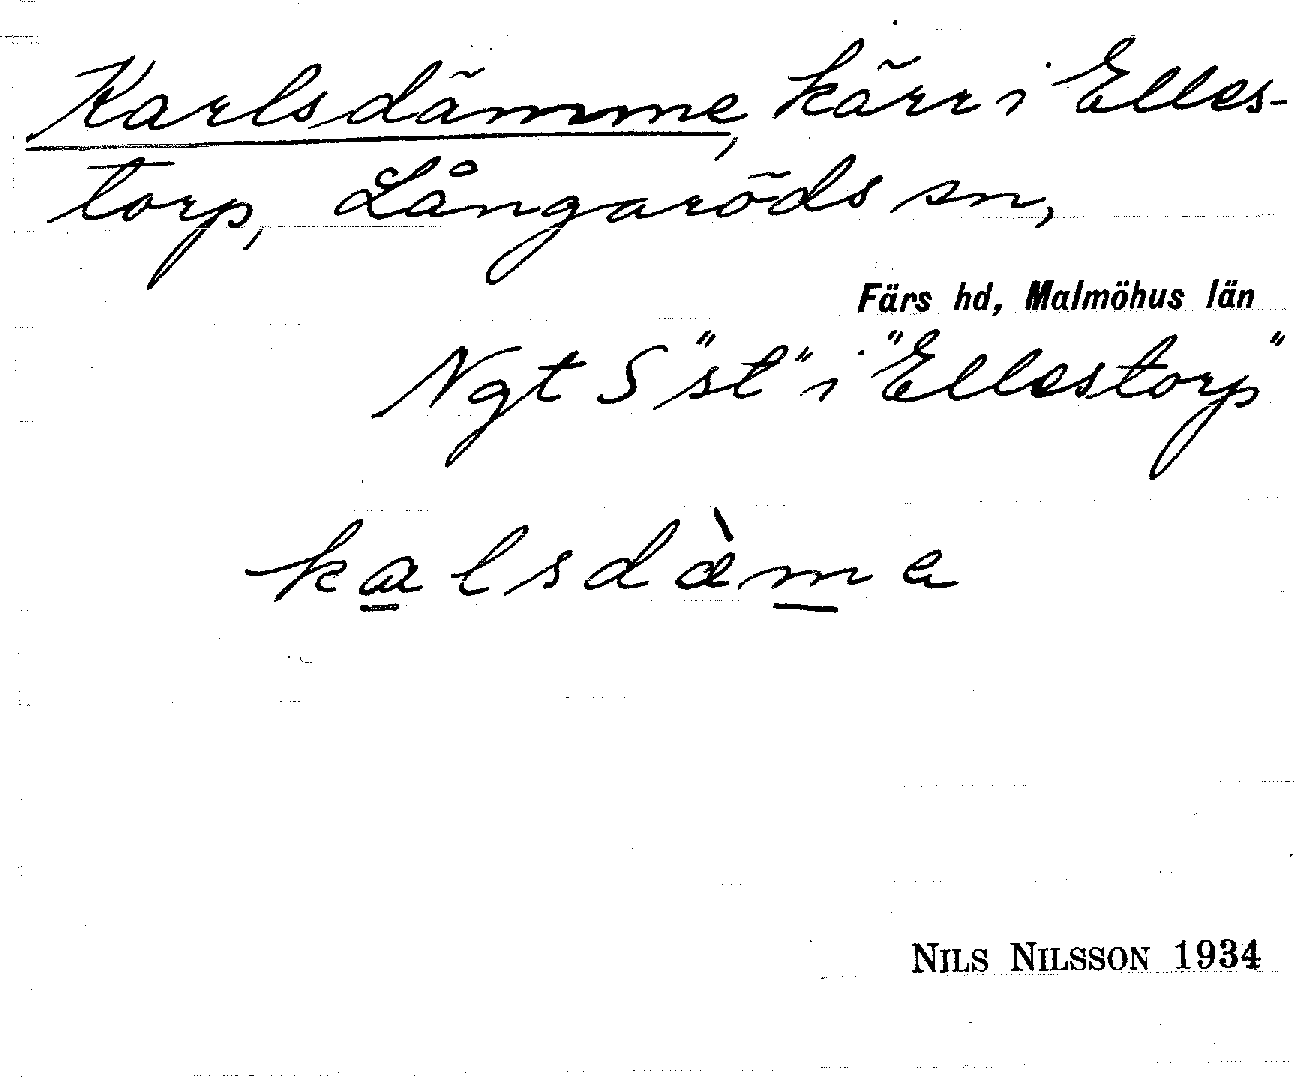 Karlsdämme, kärr i Elles-
torp, Långaröds sn,
Färs hd, Malmöhus län
Ngt S "st" i "Ellestorp"
ka̲lsdæ̀m̲e
NILS NILSSON 1934